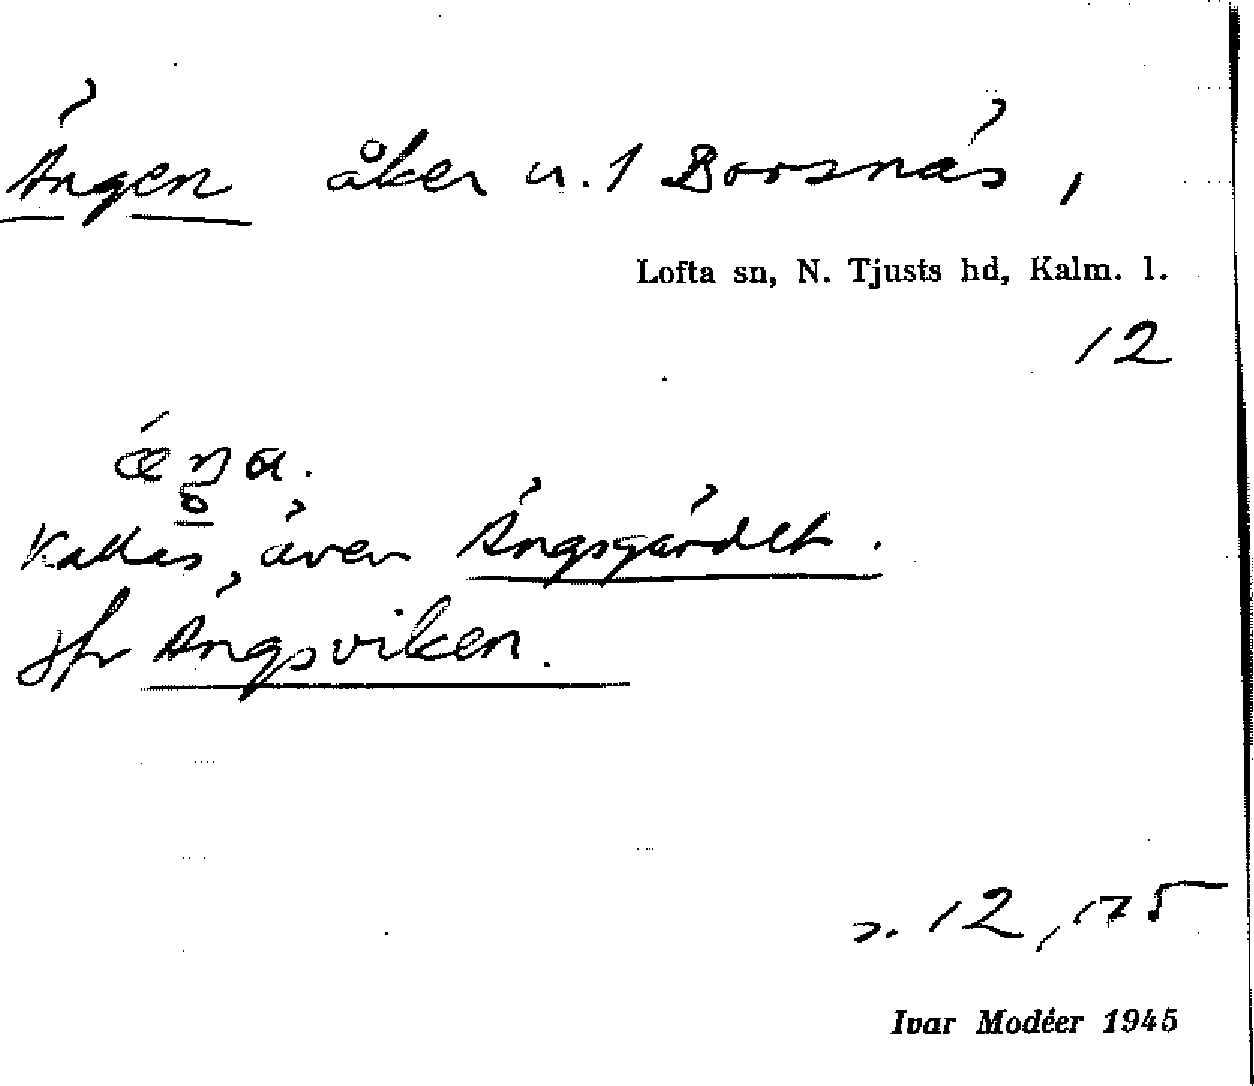 Ängen åker u. 1 Borsnäs,
Lofta sn, N. Tjusts hd, Kalm. l.
12
ǽŋa.
Kallas även Ängsgärdet.
Jfr Ängsviken.
s. 12, 175
Ivar Modéer 1945